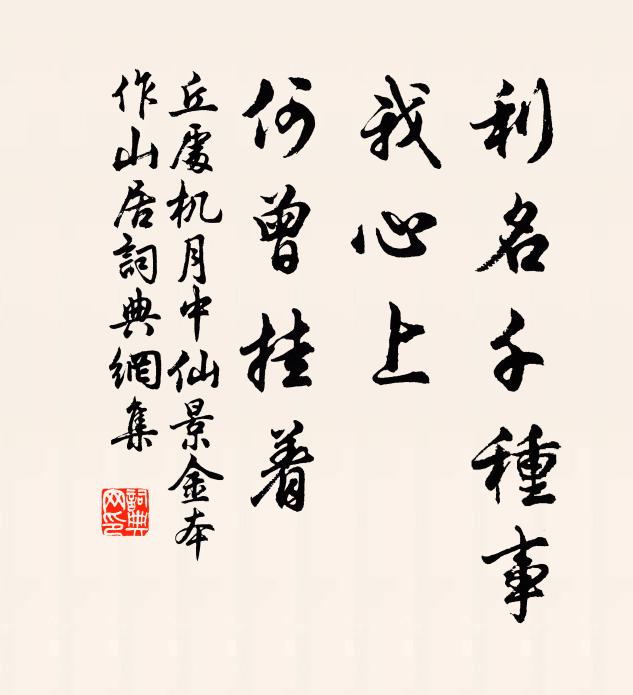 利名千種事
我心上
何曾挂着
丘處机月中仙景金本
作山居詞典網集
詞典网印